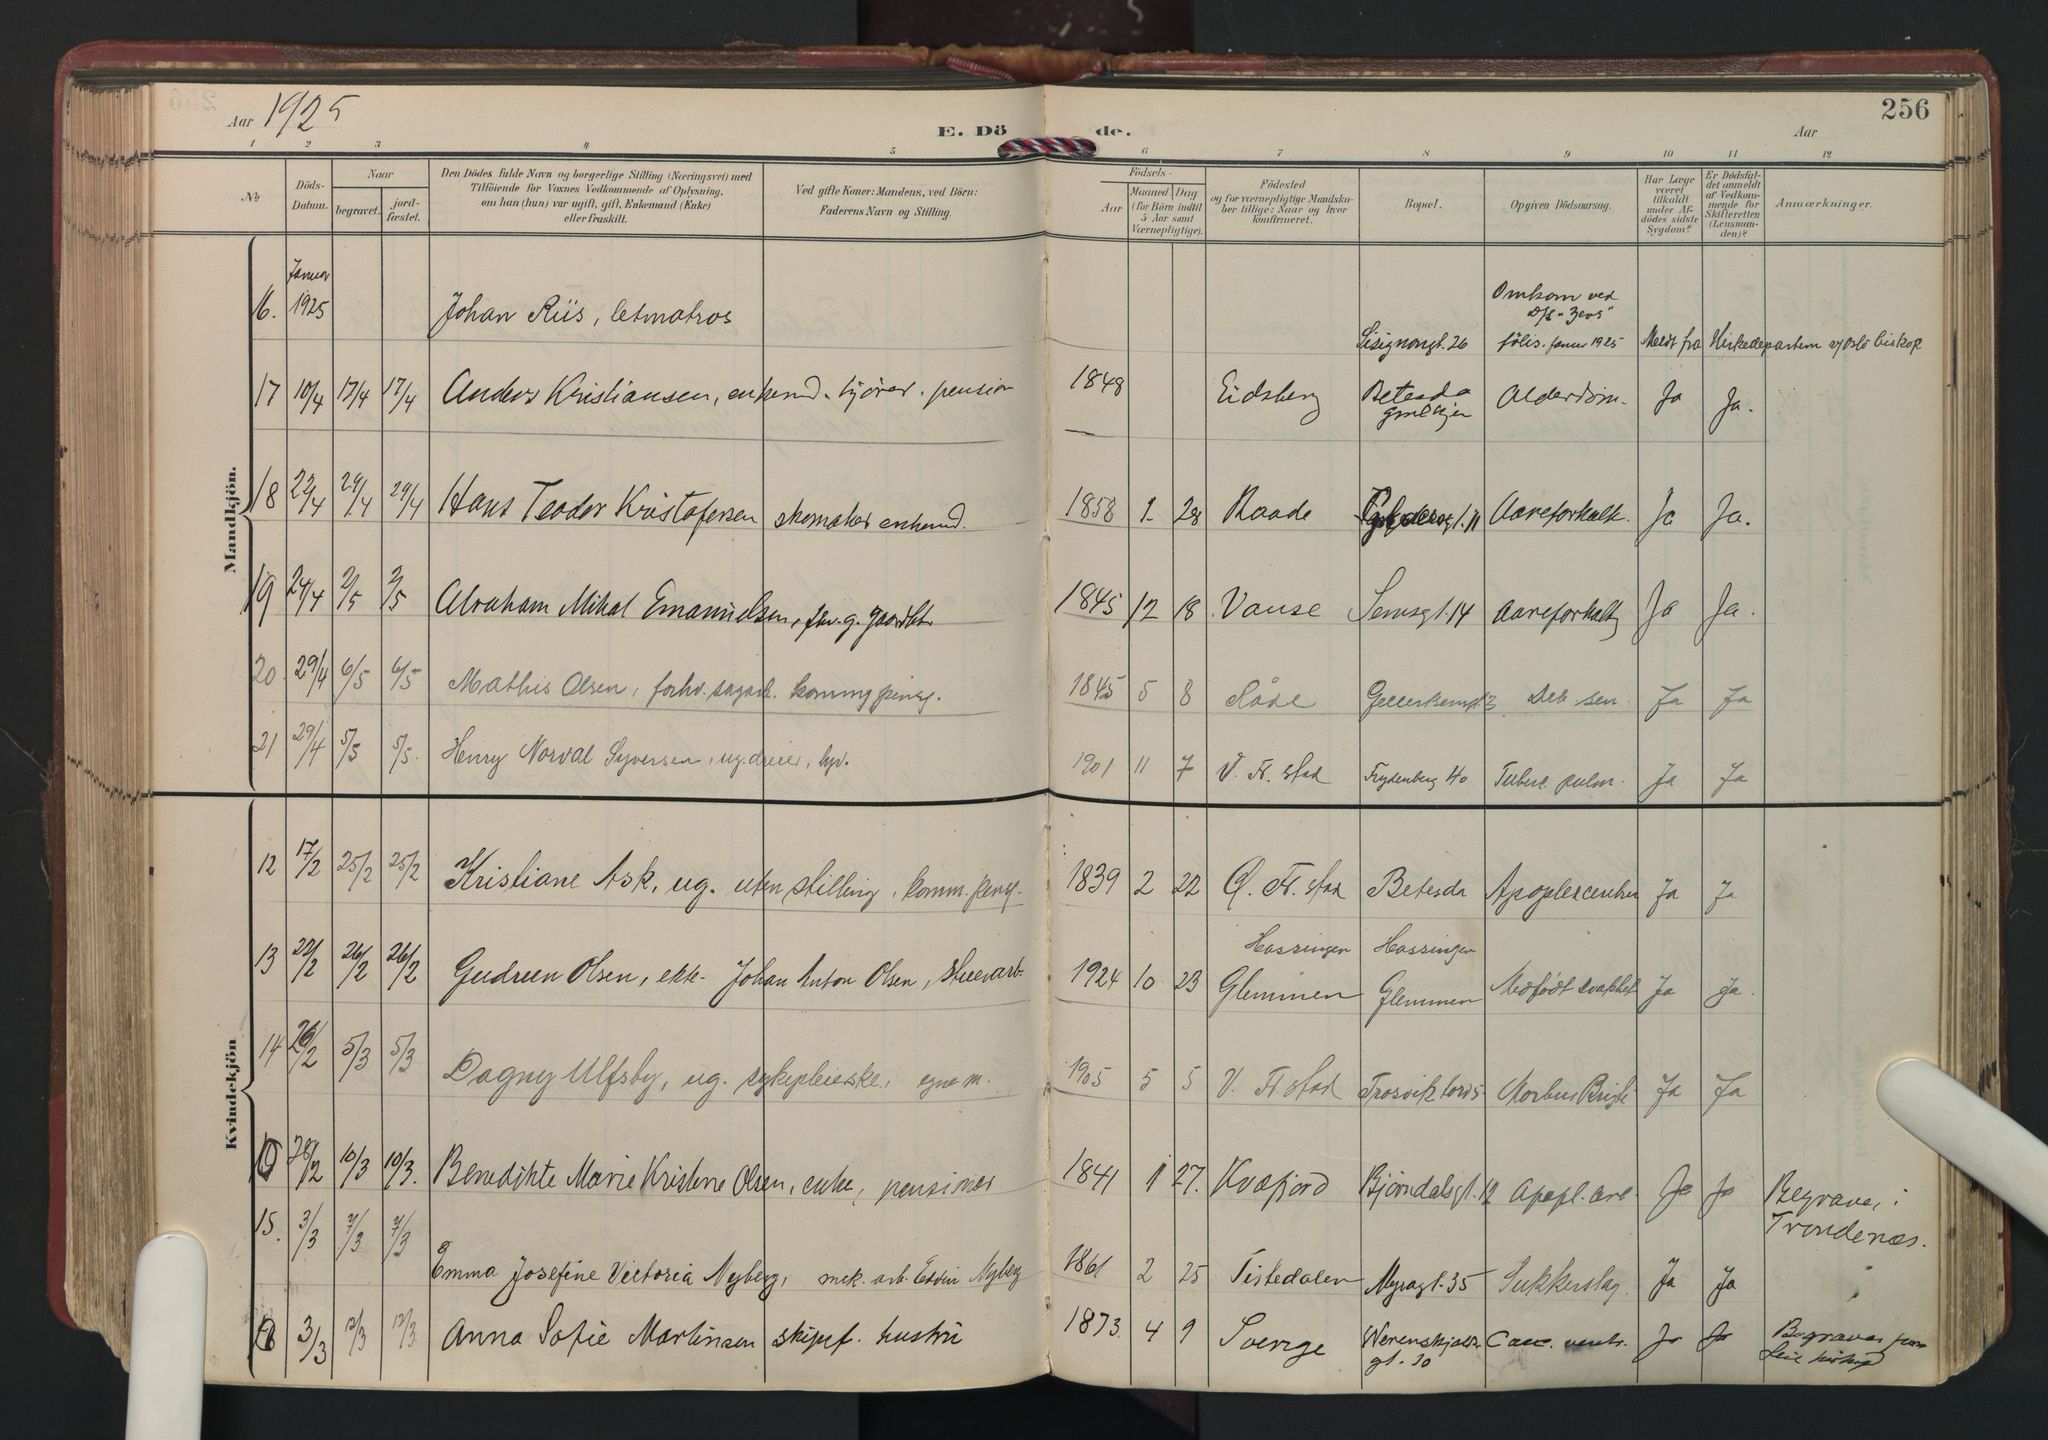 Aar 1925
E. Dö de.
Aar
256
1 2 3 4 5 6 7 8 9 10 11 12
No
Döds-Datum.
Naar
begravet.
jord-fæstet.
Den Dödes fulde Navn og borgerlige Stilling (Næringsvei) med
Tilföiende for Voxnes Vedkommende af Oplysning,
om han (hun) var ugift, gift, Enkemand (Enke)
eller fraskilt.
Ved gifte Koner: Mandens, ved Börn:
Faderens Navn og Stilling.
Födsels-
Aar
Maaned. Dag.
(for Börn indtil
5 Aar samt
Værnepligtige).
Födested
og for værnepligtige Mandsku-
ber tillige: Naar og hvor
konfirmeret.
Bopæl.
Opgiven Dödsaarsag.
Har Læge
været
tilkaldt
under Af-
dödes sidste
Sygdom?
Er Dödsfal-
det anmeldt
af Vedkom-
mende for
Skifteretten
(Lensman-
den)?
Anmærkninger.
Mandkjön.
16. Januar 1925 Johan Riis, letmatros Omkom ved D/S "Zevs" forlis. januar 1925 Meldt fra Kirkedepartem v/ Oslo biskop
17 10/4 17/4 17/4 Anders Kristiansen, enkemd. kjörer. pension 1848 Eidsberg Betesda Alderdom. Ja Ja.
18 22/4 29/4 29/4 Hans Teodor Kristofersen skomaker enkemd. 1858 1 28 Raade Aareforkalk. Ja Ja.
19 24/4 2/5 2/5 Abraham Mikal Emanuelsen, fhv. g. gaardbr. 1845 12 18 Vanse Semsgt. 14 Aareforkalkg Ja Ja.
20 29/4 6/5 6/5 Mathis Olsen, forhv. sagarb. kommy pensj. 1845 5 8 Råde Deb. sen. Ja Ja
21 29/4 5/5 5/5. Henry Norval Syversen, ug. dreier, hjv. 1901 11 7 V. Fr.stad Frydenberg 40 Tuberc pulm. Ja Ja
Kvindekjön
12 17/2 25/2 25/2 Kristiane Ask, ug. uten stilling, komm. pensj. 1839 2 22 Ø. Fr.stad Betesda Ja Ja
13 22/2 26/2 26/2 Gudrun Olsen, ekte- Johan Anton Olsen, stuevarb. 1924 10 23 Hassingen Glemmen Hassingen Glemmen Medfødt svakhet Ja Ja.
14 26/2 5/3 5/3 Dagny Ulfsby, ug. sykepleierske, egne m. 1905 5 5 V. Fr.stad Morbus Brigh Ja Ja
28/2 10/3 10/3. Benedikte Marie Kristine Olsen, enke, pensioner 1841 1 27. Kvæfjord Bjørndalsgt. 12 Apopl. cere. Ja Ja Begraves i Trondenæs.
15. 3/3 7/3 7/3 Emma Josefine Victoria Nyberg, mek. arb. Edvin Nyberg 1861 2 25 Tistedalen Myragt. 35 Sukkersyg. Ja Ja
16 3/3 12/3 12/3. Anna Sofie Martinsen skipsf. hustru 1873. 4 9 Sverige Werenskjolds-gt. 30 Canc. ventr. Ja Ja Begraves fra